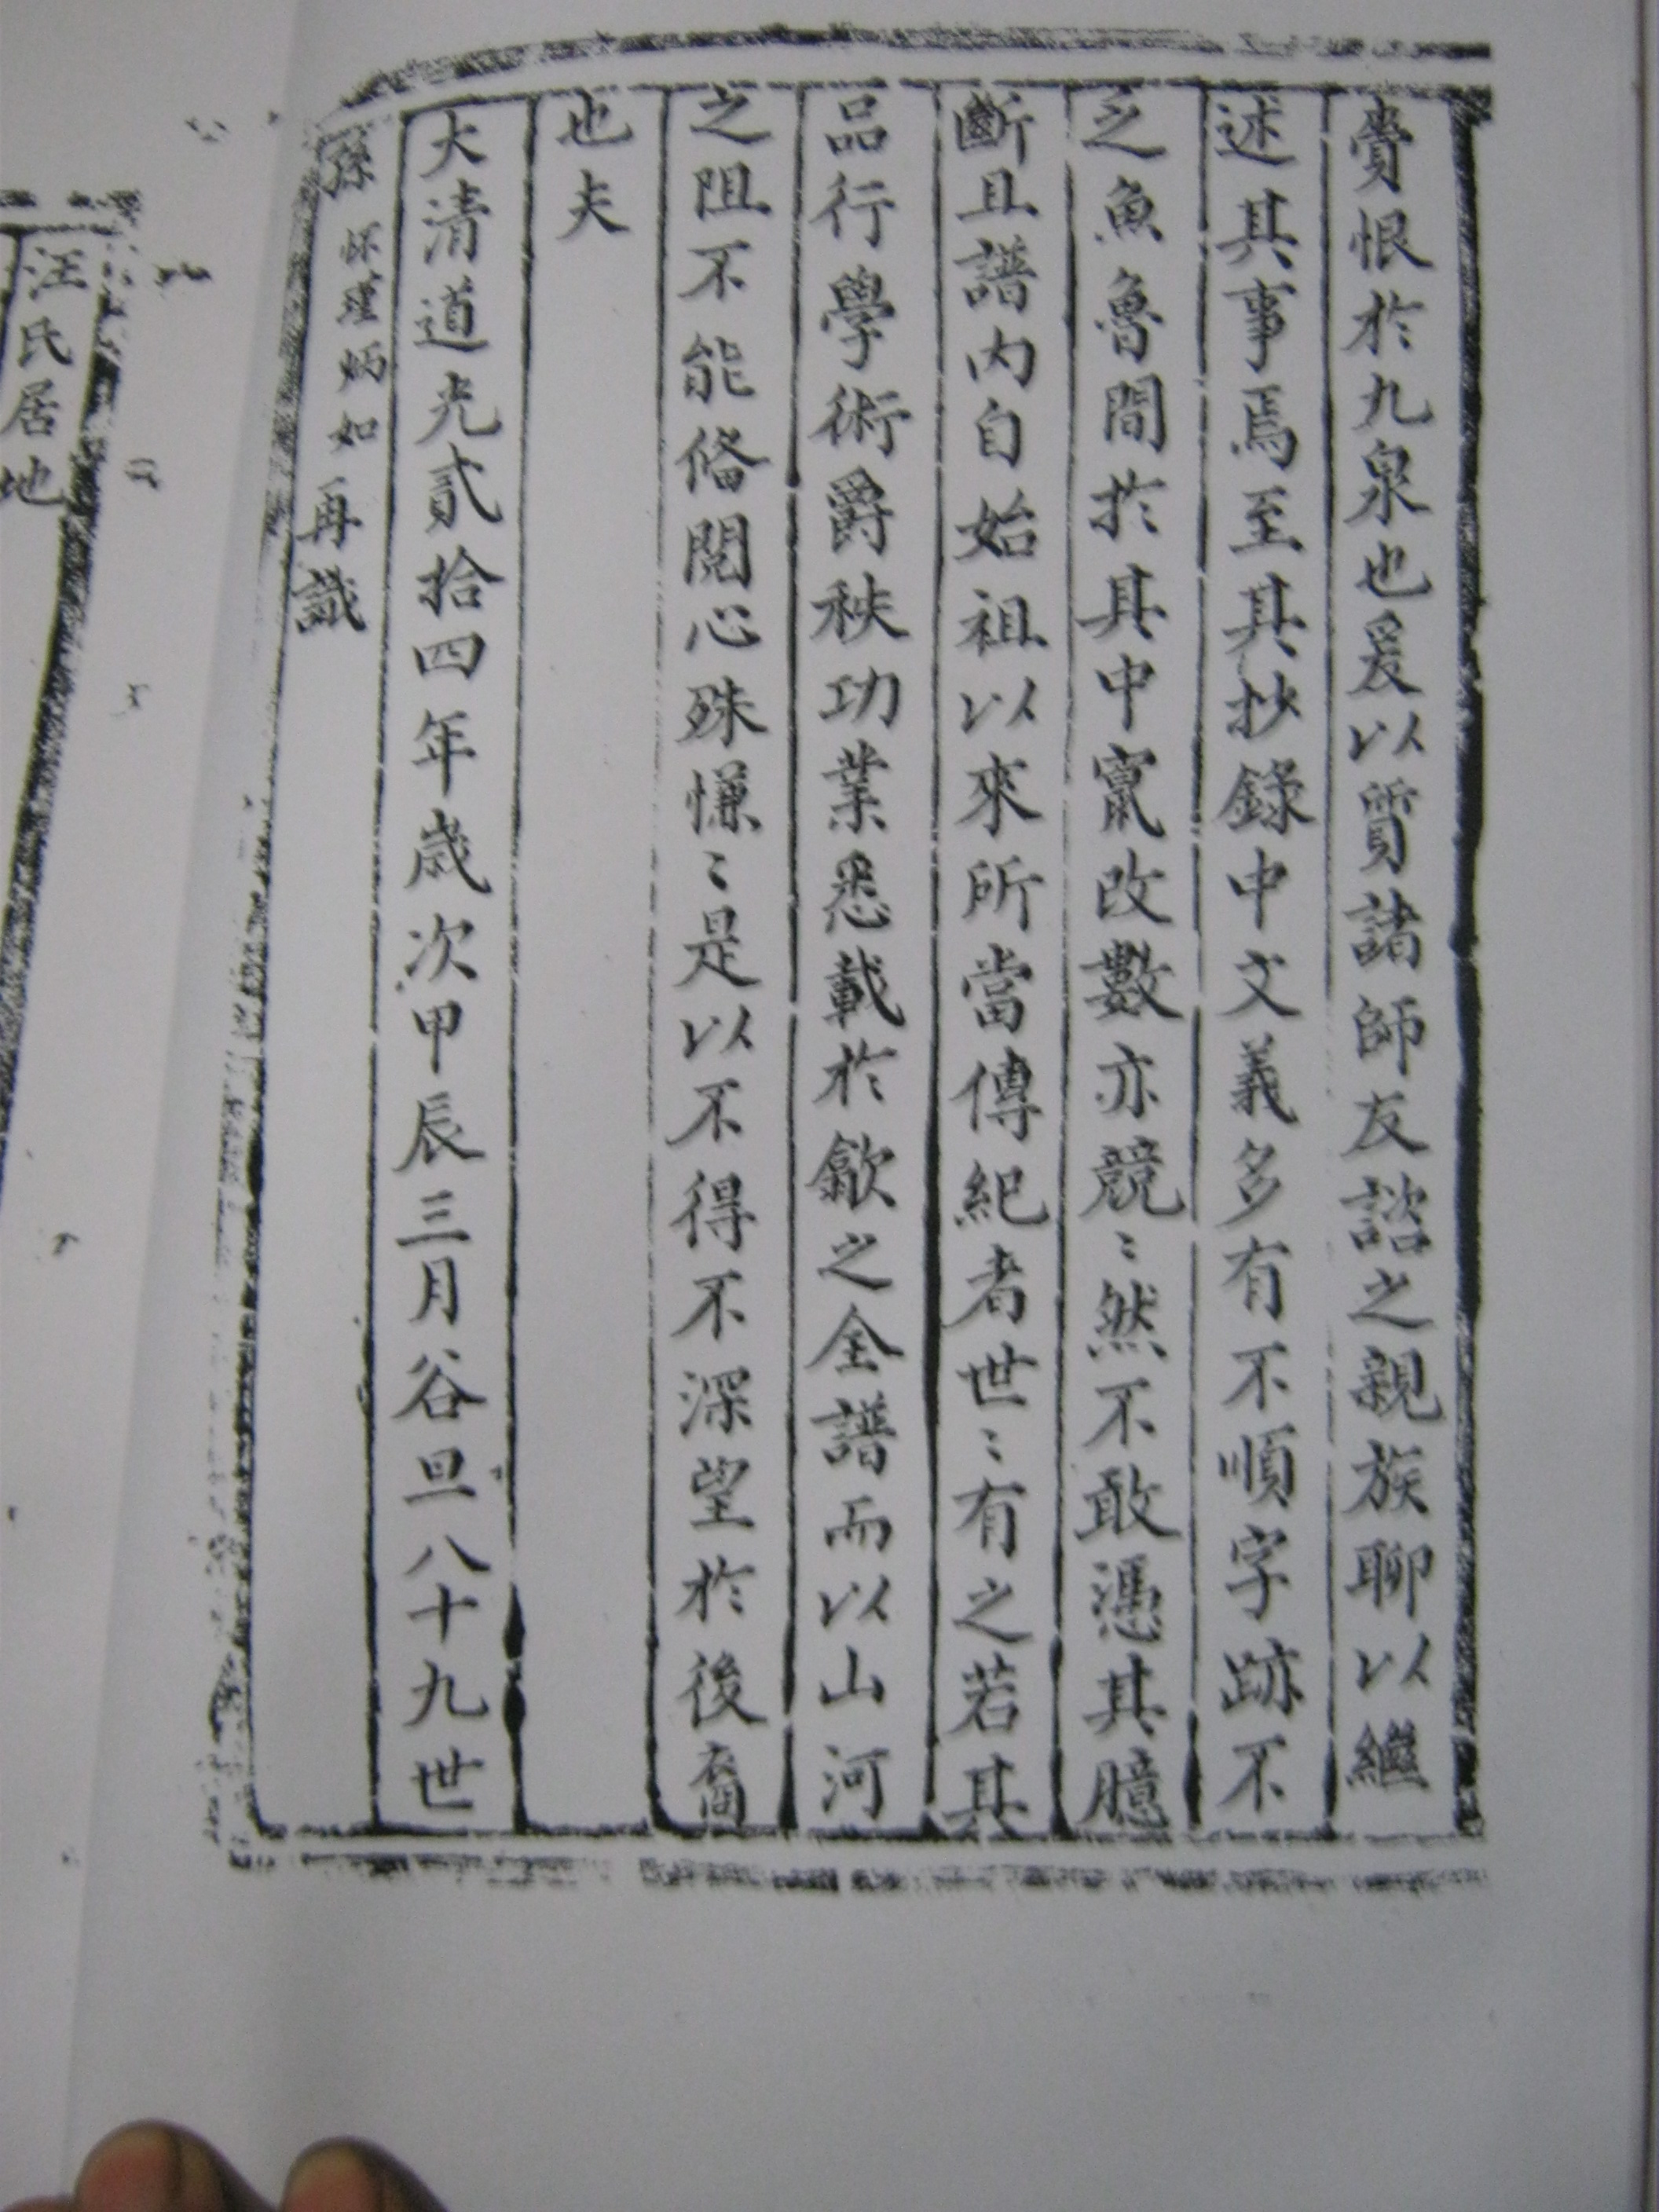 賫恨於九泉也爰以質諸師友諮之親族聊以繼
述其事焉至其抄錄中文義多有不順字跡不
乏魚魯間於其中竄改數亦競〻然不敢憑其臆
斷且譜内自始祖以來所當傳紀者世〻有之若其
品行學術爵秩功業悉載於歙之全譜而以山河
之阻不能俻閱心殊慊〻是以不得不深望於後裔
也夫
大清道光貳拾四年歲次甲辰三月谷旦八十九世
孫 怀瑾炳如 再識
汪氏居地